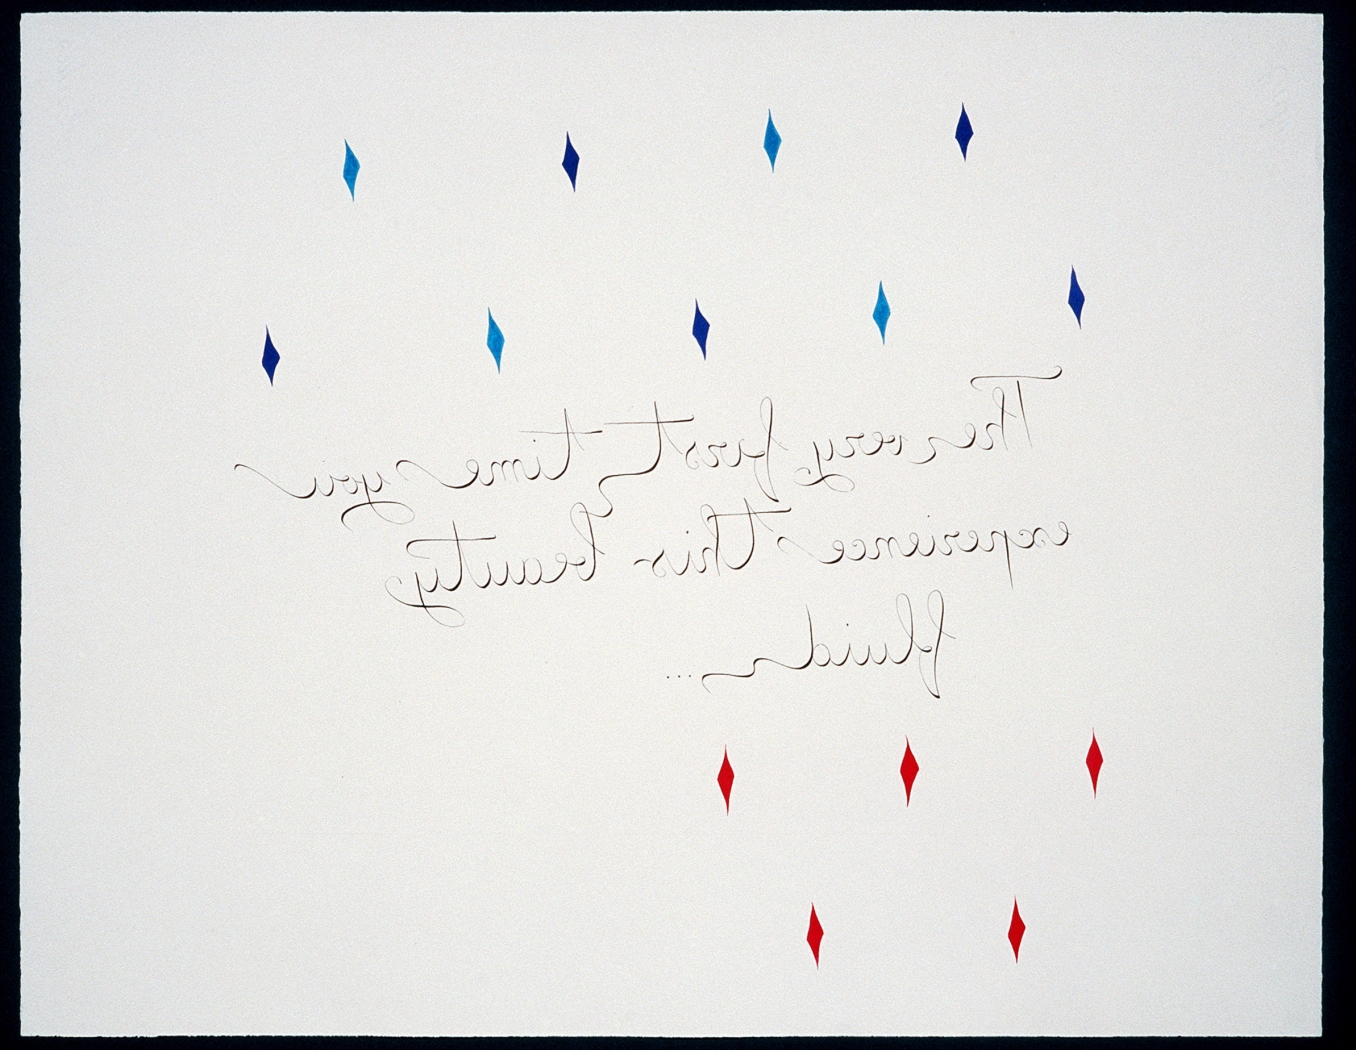 The very first time you
experience this beauty
fluid...